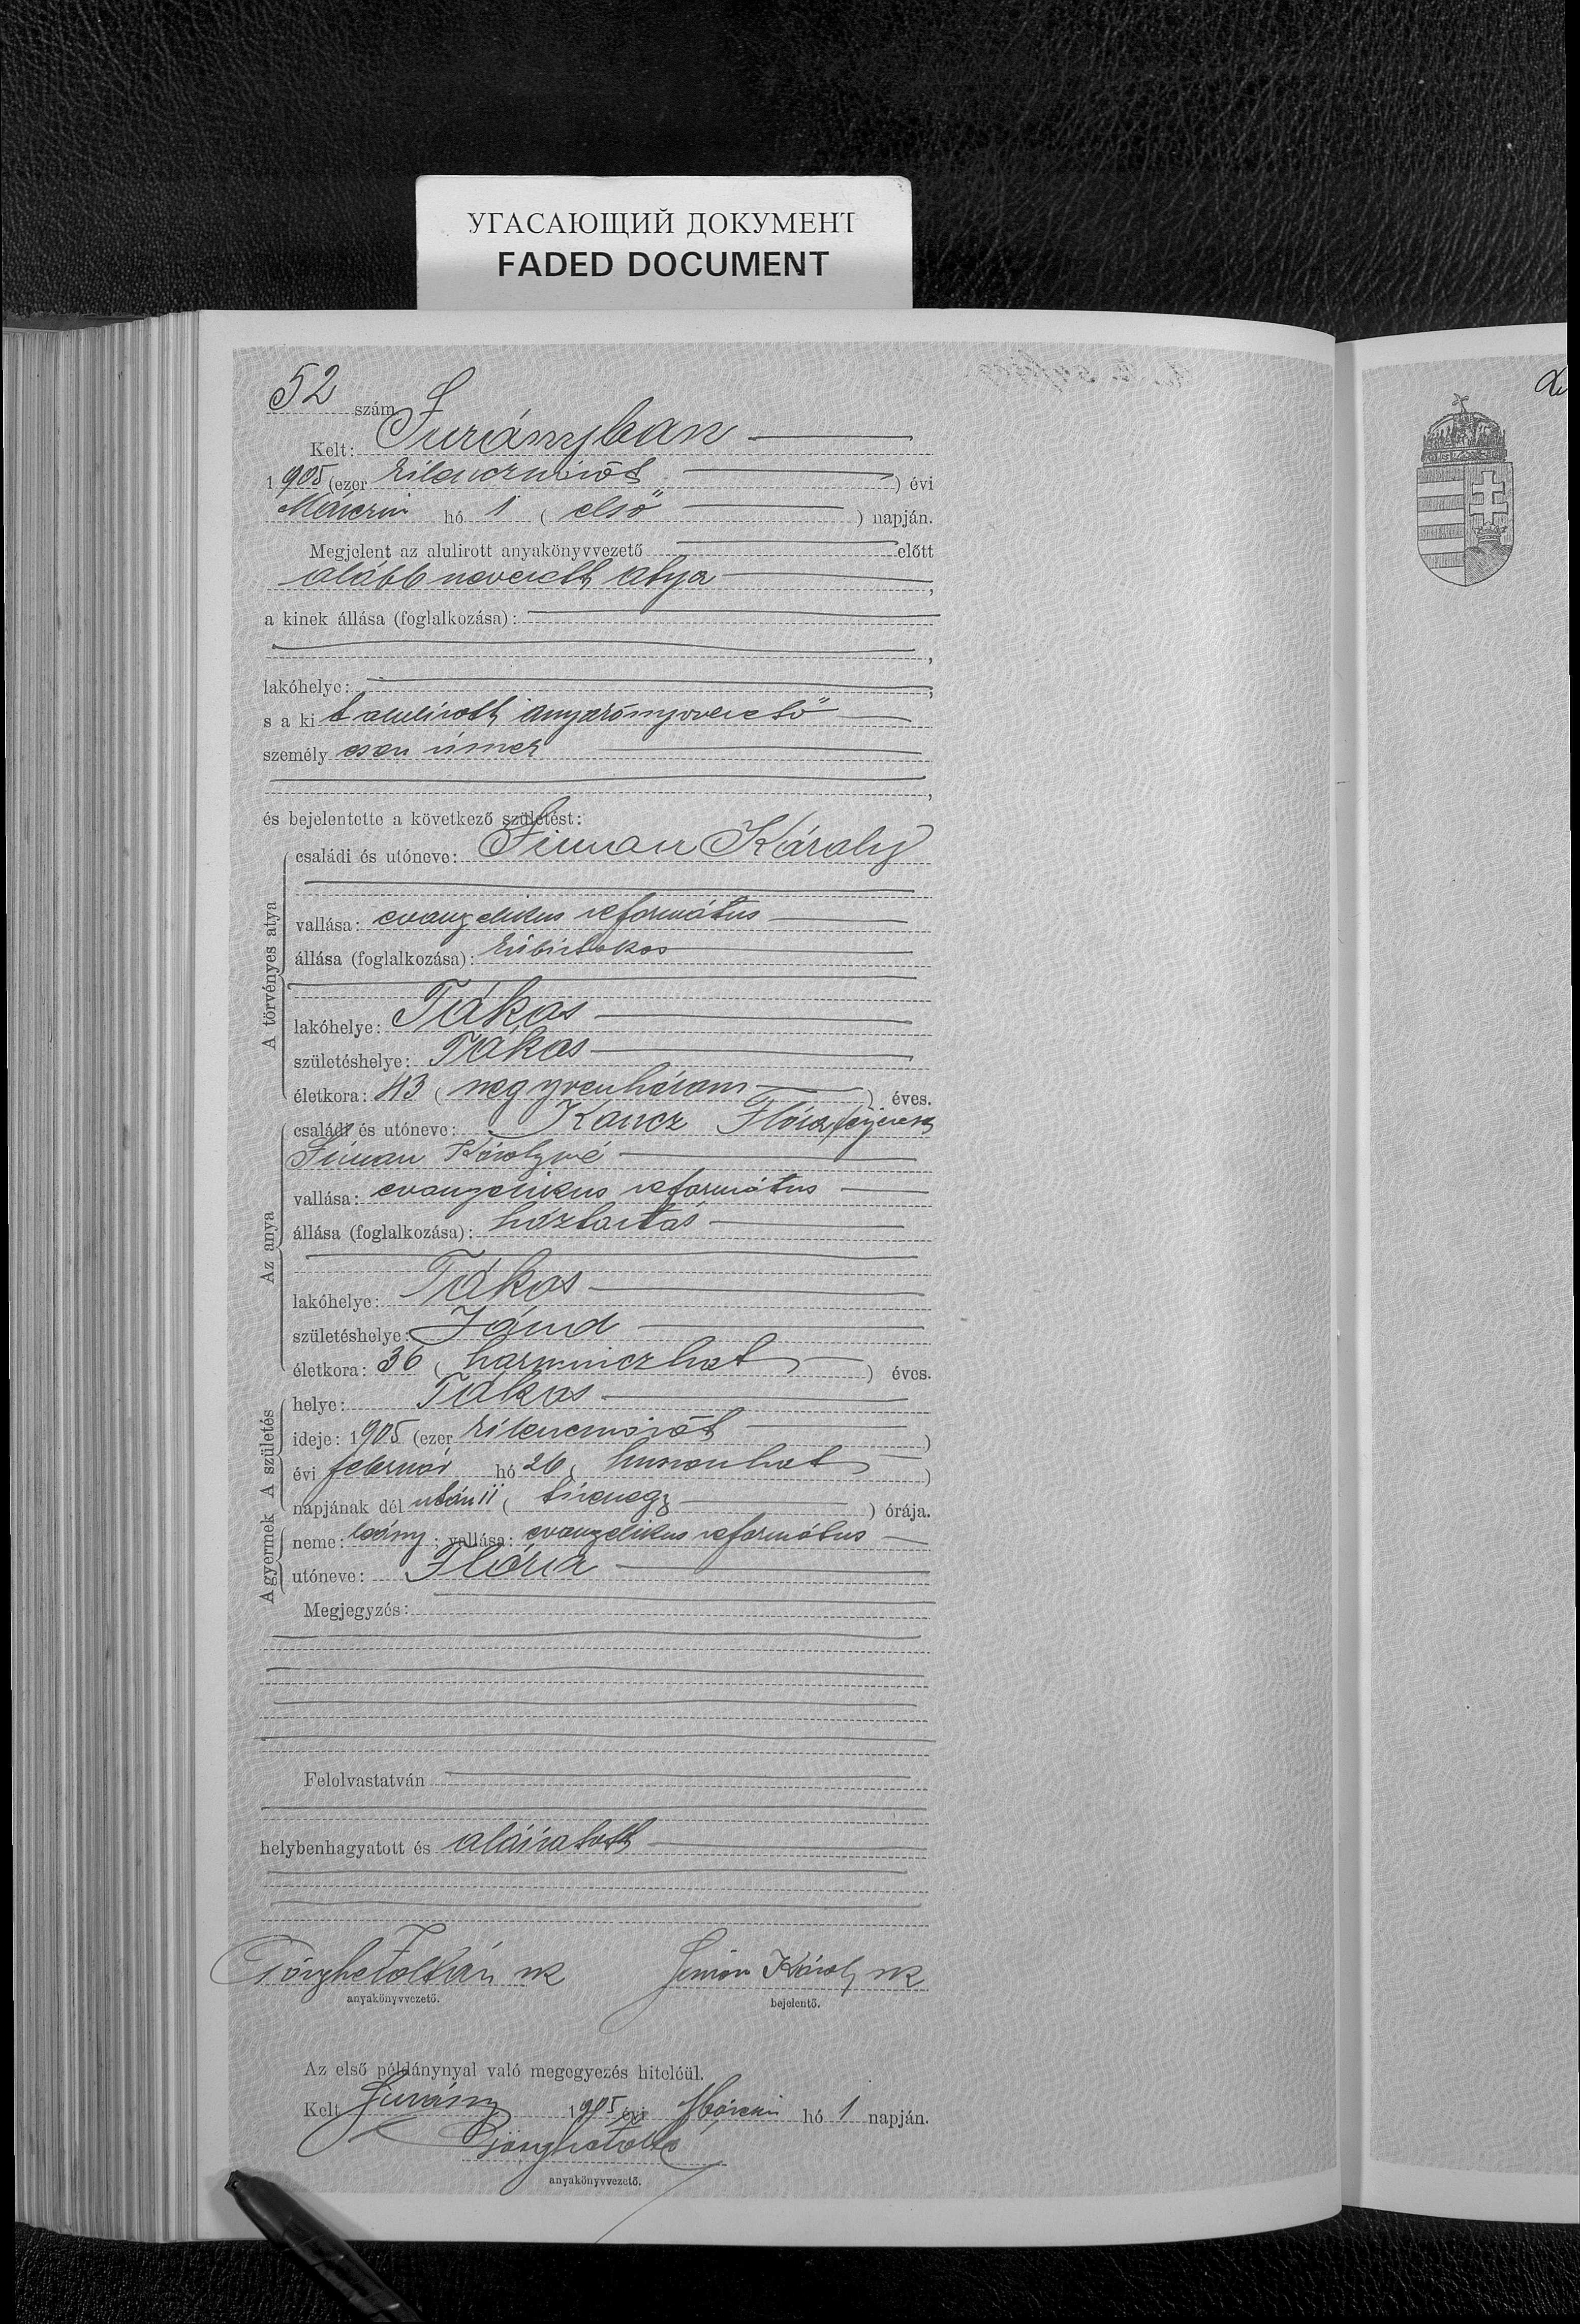 УГАСАЮЩИЙ ДОКУМЕНТ
FADED DOCUMENT
52 szám
Kelt: Surányban
1905 (ezer kilenczszázöt) évi
Márczius hó 1 (első) napján.
Megjelent az alulirott anyakönyvvezető előtt
alább nevezett atya,
a kinek állása (foglalkozása):
,
lakóhelye: ,
s a kit alulirott anyakönyvvezető
személyesen ismer
,
és bejelentette a következő születést:
A törvényes atya
családi és utóneve: Simon Károly
vallása: evangelikus református
állása (foglalkozása): kisbirtokos
lakóhelye: Tákos
születéshelye: Tákos
életkora: 43 (negyvenhárom) éves.
Az anya
családi és utóneve: Koncz Flóra, férjezett
Simon Károlyné
vallása: evangelikus református
állása (foglalkozása): háztartás
lakóhelye: Tákos
születéshelye: Jánd
életkora: 36 (harminczhat) éves.
A születés
helye: Tákos
ideje: 1905 (ezer kilenczszázöt)
évi február hó 26 (huszonhat)
napjának dél után 11 (tizenegy) órája.
A gyermek
neme: leány; vallása: evangelikus református
utóneve: Flóra
Megjegyzés:
Felolvastatván
helybenhagyatott és aláíratott
Zoltán sk Simon Károly sk
anyakönyvvezető. bejelentő.
Az első példánynyal való megegyezés hiteléül.
Kelt Surány 1905 évi Márczius hó 1 napján.
anyakönyvvezető.